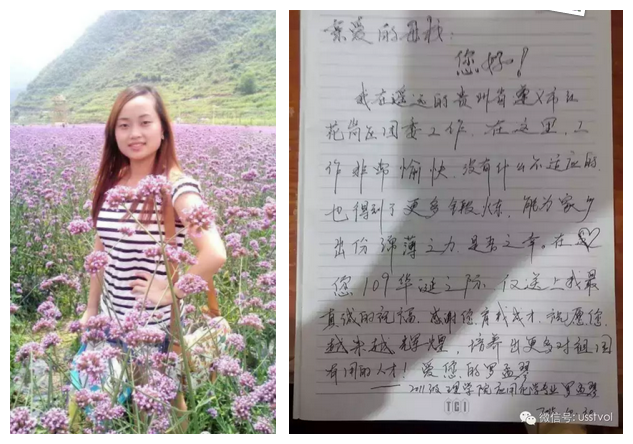 亲爱的母校:
您好!
我在遥远的贵州省遵义市红
花岗区团委工作,在这里,工
作非常愉快,没有什么不适应的
也得到了更多锻炼,能为家乡
出份绵薄之力,是吾之幸。在
您109华诞之际,仅送上我最
真诚的祝福,感谢您育我成才,祝愿您,
越来越辉煌,培养出更多对祖国
有用的人才!爱您的罗
——2011级理学院应用化学专业 罗
TGI
微信号: usstvol